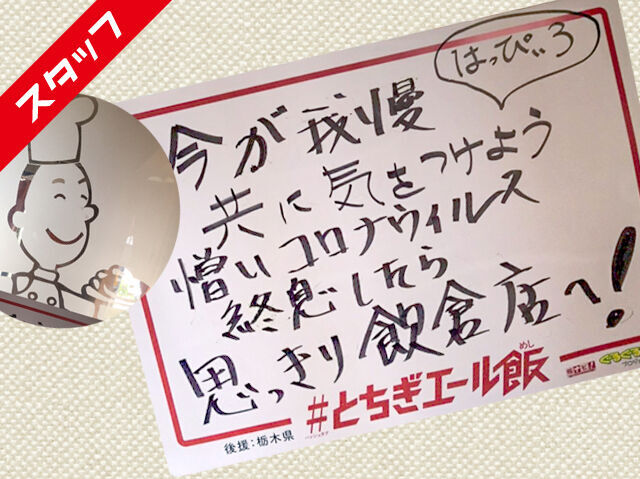 スタッフ
はっぴぃろ
今が我慢
共に気をつけよう
憎いコロナウィルス
終息したら
思っきり飲倉店へ!
#とちぎエール飯
めし
ハッシュタグ
後援:栃木県